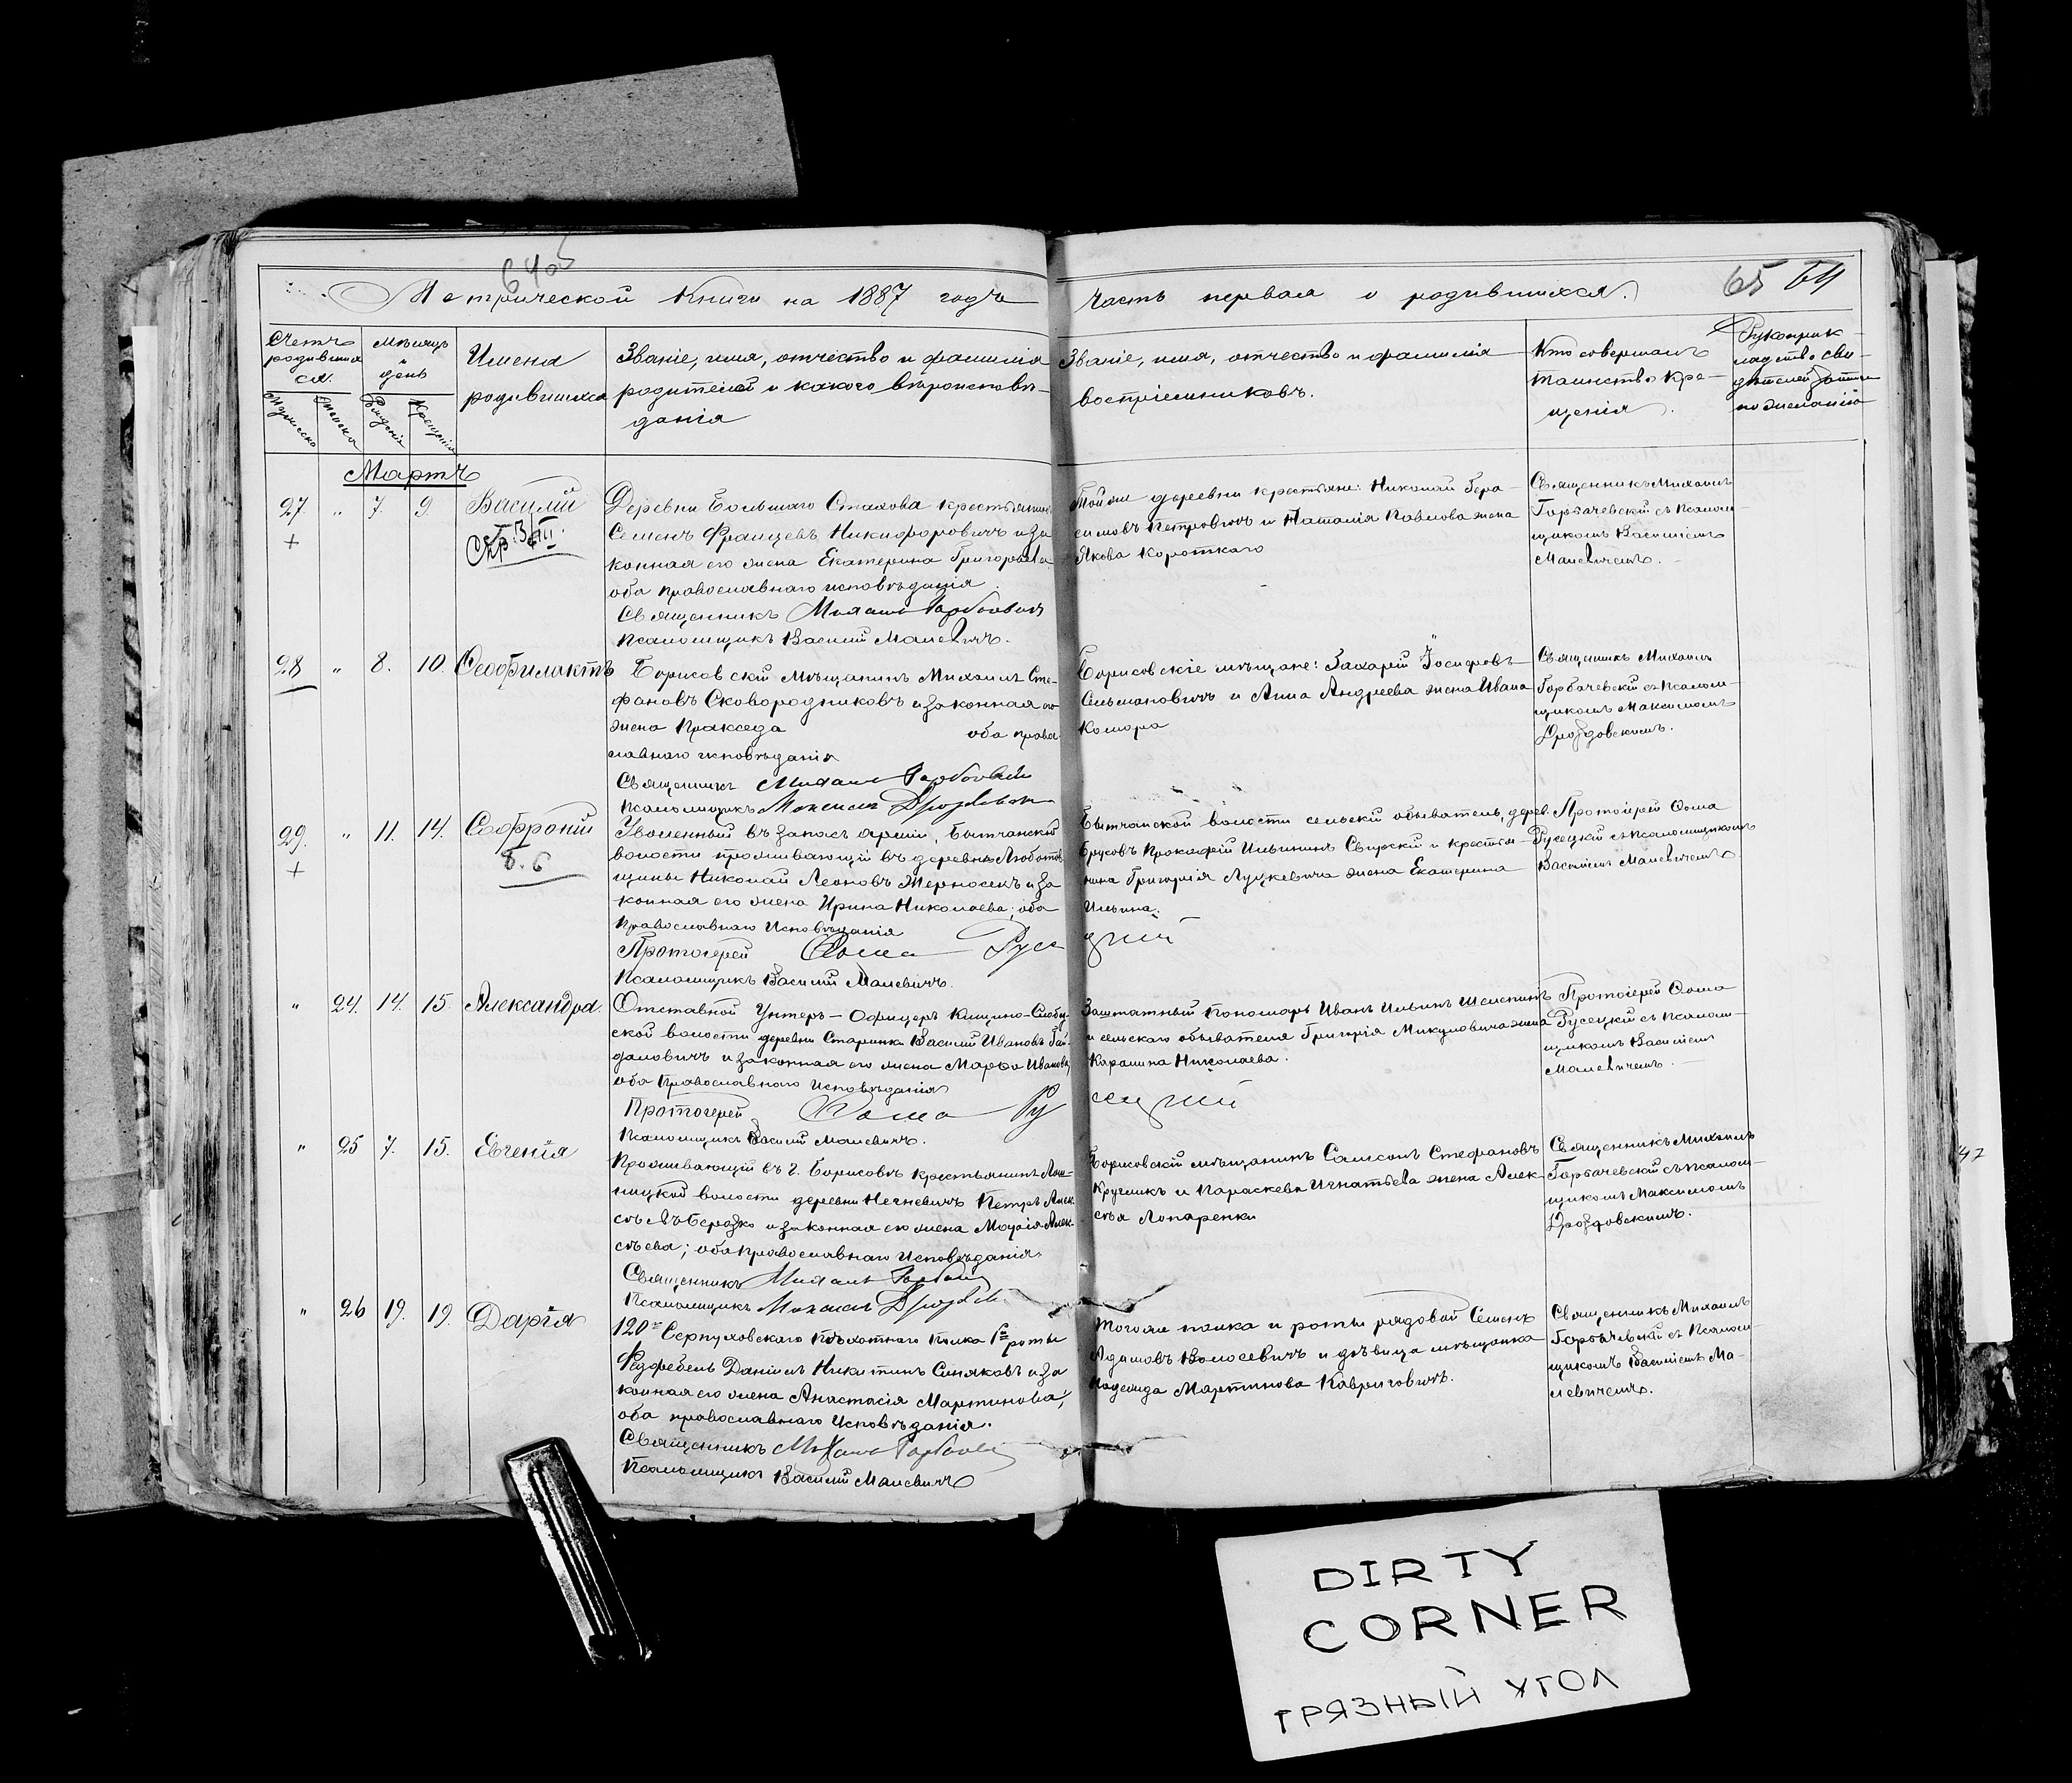 64об
Метрической Книги на 1887 годъ
часть первая о родившихся.
65 64
Счетъ родившихся.
Мужеска
Женска
Мѣсяцъ и день
Рожденія
Крещенія
Имена
родившихся
Званіе, имя, отчество и фамилія
родителей и какого вѣроисповѣ-
данія
Званіе, имя, отчество и фамилія
воспріемниковъ.
Кто совершалъ
таинство кре-
щенія
Рукоприк-
ладство сви-
дѣтелей записи
по желанію
Мартъ
27 " 7. 9. Василій
+
Деревни Большаго Стахова крестьянинъ
Семенъ Францевъ Никифоровичъ и за
конная его жена Екатерина Григорьева
оба православнаго исповѣданія
Священникъ Михаилъ Горбачевскій
Псаломщикъ Василій Малевичъ.
Той же деревни крестьяне: Николай Гера-
симовъ Петровичъ и Наталія Павлова жена
Якова Короткаго
Священникъ Михаилъ
Горбачевскій съ псалом-
щикомъ Василіемъ
Малевичемъ.
28 " 8. 10. Ѳеофилактъ
Борисовскій мѣщанинъ Михаилъ Сте-
фановъ Сковородниковъ и законная его
жена Праксeда оба право-
славнаго исповѣданія
Священникъ Михаилъ Горбачевскій
Псаломщикъ Максимъ Дроздовскій
Борисовскіе мѣщане: Захарій Іосифовъ
Сельмановичъ и Анна Андреева жена Ивана
Комора
Священникъ Михаилъ
Горбачевскій съ псалом-
щикомъ Максимомъ
Дроздовскимъ.
29. " 11. 14. Софроній
+
8. 6
Уволенный въ запасъ арміи, Бытчанской
волости проживающій въ деревнѣ Любатов-
щины Николай Леоновъ Жерносекъ и за
конная его жена Ирина Николаева; оба
Православнаго Исповѣданія
Протоіерей Ѳома Русецкій
Псаломщикъ Василій Малевичъ.
Бытчанской волости сельскій обыватель, дерев.
Брусовъ Прокофій Ильининъ Свирскій и крестья-
нина Григорія Луцкевича жена Екатерина
Ильина.
Протоіерей Ѳома
Русецкій съ псаломщикомъ
Василіемъ Малевичемъ.
" 24. 14. 15. Александра.
Отставной Унтеръ-Офицеръ Клицино-Слобод-
ской волости деревни Старинки Василій Ивановъ Гай-
даловичъ и законная его жена Марѳа Иванова
оба Православнаго Исповѣданія
Протоіерей Ѳома Русецкій
Псаломщикъ Василій Малевичъ.
Заштатный Пономарь Иванъ Ильинъ Шелепинъ
и сельскаго обывателя Григорія Микуловича жена
Каралина Николаева.
Протоіерей Ѳома
Русецкій съ псалом-
щикомъ Василіемъ
Малевичемъ.
" 25 7. 15. Евгенія
Проживающій въ г. Борисовѣ крестьянинъ Лош-
ницкой волости деревни Негневичъ Петръ Алек-
сѣевъ Березко и законная его жена Марія Алек-
сѣева; оба Православнаго Исповѣданія.
Священникъ Михаилъ Горбачевскій
Псаломщикъ Максимъ Дроздовскій
Борисовскій мѣщанинъ Самсонъ Стефановъ
Кругликъ и Параскева Игнатьева жена Алек-
сѣя Лопаренки
Священникъ Михаилъ
Горбачевскій съ псалом-
щикомъ Максимомъ
Дроздовскимъ.
47
" 26 19. 19. Дарія
120го Серпуховскаго Пѣхотнаго Полка 1й роты
Фелдфебель Даніилъ Никитинъ Синяковъ и за
конная его жена Анастасія Мартинова;
оба православнаго Исповѣданія.
Священникъ Михаилъ Горбачевскій
Псаломщикъ Василій Малевичъ
Того же полка и роты рядовой Семенъ
Адамовъ Волосевичъ и дѣвица мѣщанка
Надежда Мартинова Кавриговичъ.
Священникъ Михаилъ
Горбачевскій съ Псалом-
щикомъ Василіемъ Ма-
левичемъ.
DIRTY
CORNER
ГРЯЗНЫЙ УГОЛ